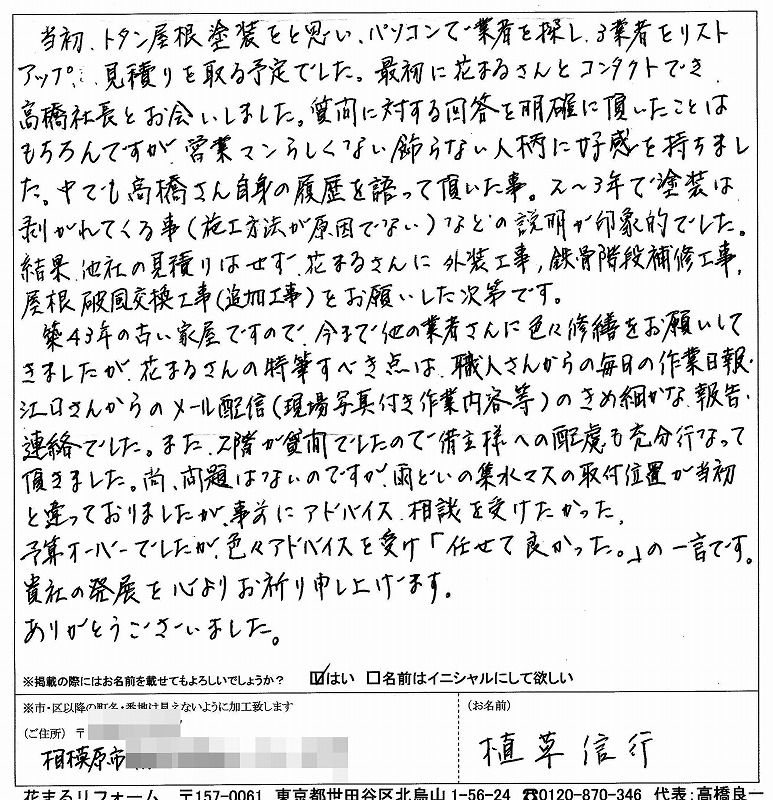 当初、トタン屋根塗装をと思い、パソコンで業者を探し、3業者をリスト
アップ、見積りを取る予定でした。最初に花まるさんとコンタクトでき
高橋社長とお会いしました。質問に対する回答を明確に頂いたことは
もちろんですが、営業マンらしくない飾らない人柄に好感を持ちまし
た。中でも高橋さん自身の履歴を語って頂いた事。2〜3年で塗装は
剥がれてくる事(施工方法が原因でない)などの説明が印象的でした。
結果、他社の見積りはせず、花まるさんに外装工事,鉄骨階段補修工事,
屋根破風交換工事(追加工事)とお願いした次第です。
築43年の古い家屋ですので、今まで他の業者さんに色々修繕をお願いして
きましたが、花まるさんの特筆すべき点は、職人さんからの毎日の作業日報・
江口さんからのメール配信(現場写真付き作業内容等)のきめ細かな報告・
連絡でした。また、2階が賃間でしたので借主様への配慮も充分行なって
頂きました。尚、問題はないのですが、雨どいの集水マスの取付位置が当初
と違っておりましたが、事前にアドバイス、相談を受けたかった。
予算オーバーでしたが、色々アドバイスを受け「任せて良かった。」の一言です。
貴社の発展を心よりお祈り申し上げます。
ありがとうございました。
※掲載の際にはお名前を載せてもよろしいでしょうか? ☑はい □名前はイニシャルにして欲しい
※市・区以降の町名・番地は見えないように加工致します
(ご住所) 〒
相模原市
(お名前)
植草信行
花まるリフォーム 〒157-0061 東京都世田谷区北烏山1-56-24 ☎0120-870-346 代表:高橋良一